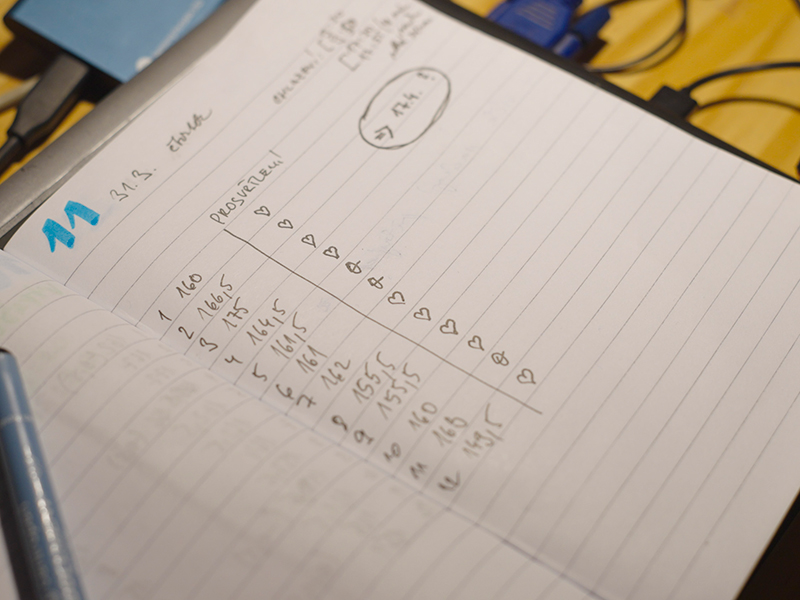 11
31.3. čtvrtek
⇒ 17.4. !
PROSVÍCENÍ
1 160 ♡
2 166,5 ♡
3 175 ♡
4 164,5 ♡
5 161,5
6 161
7 162 ♡
8 155,5 ♡
9 155,5 ♡
10 160 ♡
11 160
12 149,5 ♡